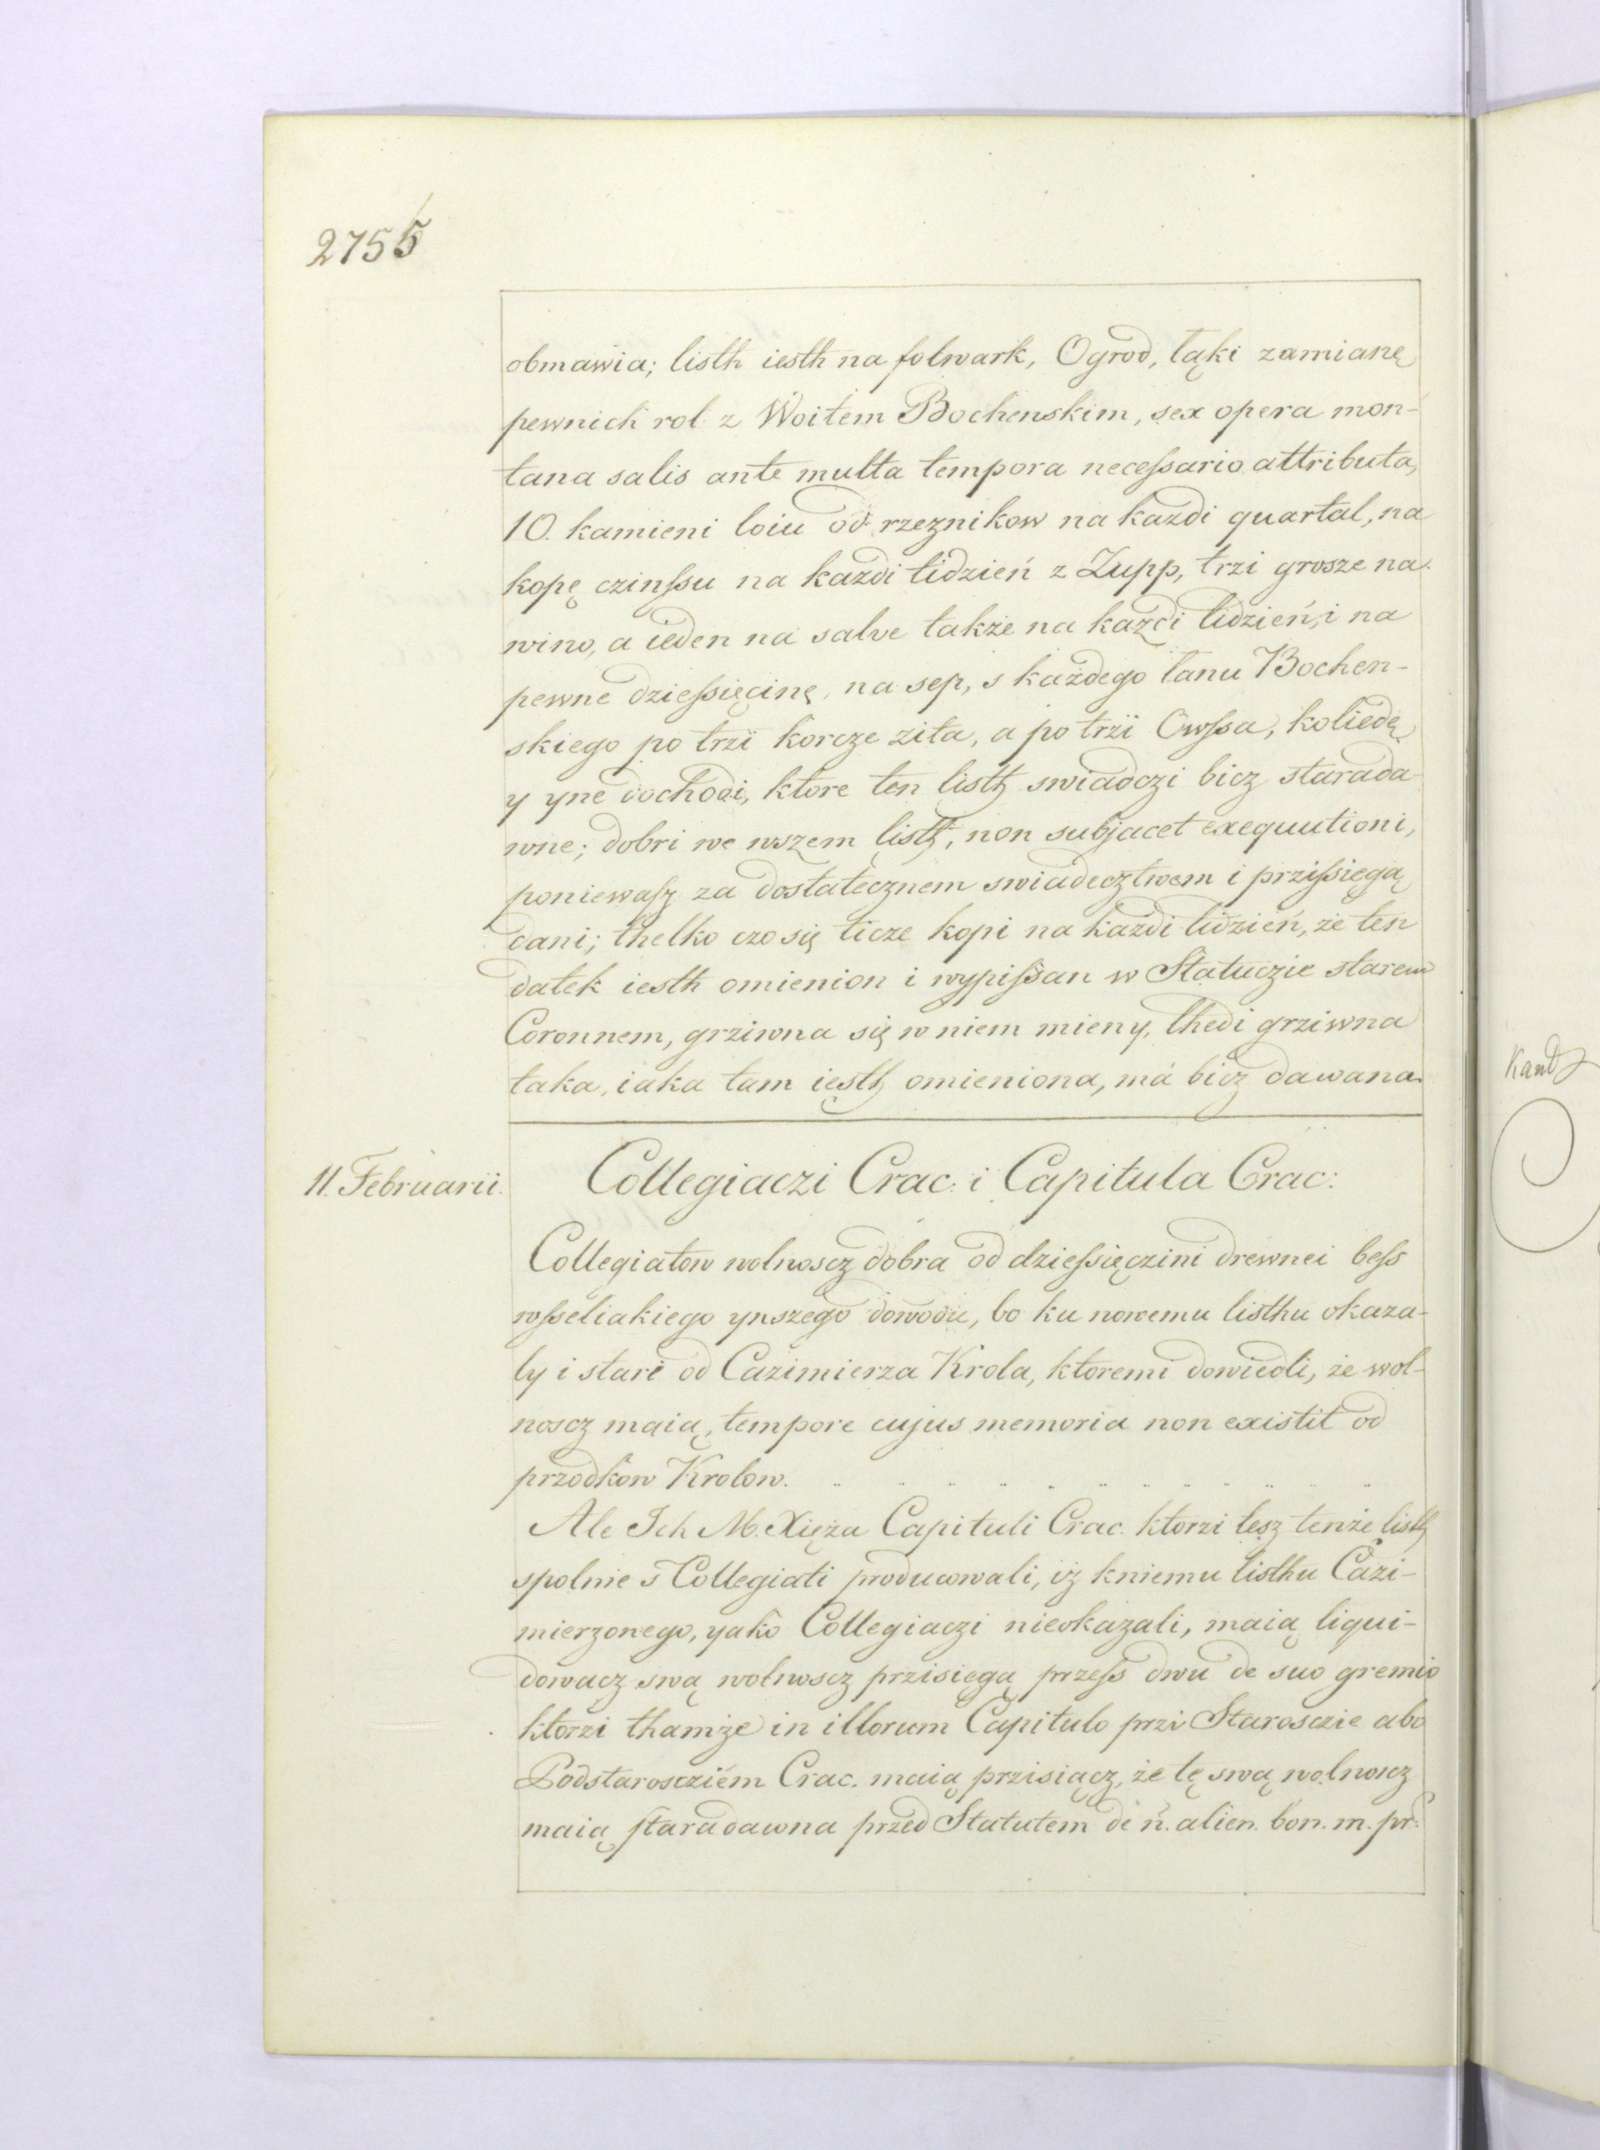 2755
obmawia; listh iesth na folwark, Ogrod, łąki zamianę
pewnich rol z Woitem Bochenskim, sex opera mon-
tana salis ante multa tempora necessario attributa,
10. kamieni loiu od rzeznikow na każdi quartal, na
kopę czinssu na każdi tidzień z Zupp, trzi grosze na
wino, a ieden na salve także na każdi tidzień, i na
pewne dziessięcinę, na sep, s każdego łanu Bochen-
skiego po trzi korcze zita, a po trzi Owssa, koliedę
y yne dochodi, ktore ten listh swiadczi bicz starada-
wne; dobri we wszem listh, non subjacet exequutioni,
poniewasz za dostatecznem swiadecztwem i przissiegą
dani; thelko czo się ticze kopi na każdi tidzień, że ten
datek iesth omienion i wypissan w Statuczie starem
Coronnem, grziwna się w niem mieny, thedi grziwna
taka, iaka tam iesth omieniona, má bicz dawana.
11. Februarii.
Collegiaczi Crac: i Capitula Crac:
Collegiatow wolnoscz dobra od dziessięczini drewnei bess
wsseliakiego ynszego dowodu, bo ku nowemu listhu okaza-
ly i stari od Cazimierza Krola, ktoremi dowiedli, że wol-
noscz maią, tempore cujus memoria non existit od
przodkow Krolow.
Ale Ich M. Xięża Capituli Crac. ktorzi tesz tenże listh
spolnie s Collegiati producowali, iż kniemu listhu Cazi-
mierzonego, yako Collegiaczi nieokazali, maią liqui-
dowacz swą wolnoscz przisiegą przess dwu de suo gremio
ktorzi thamże in illorum Capitulo przi Starosczie abo
Podstarosczięm Crac. maią przisiącz, że tę swą wolnoscz
maią staradawna przed Statutem de ñ. alien. bon. m. pr:
Kand